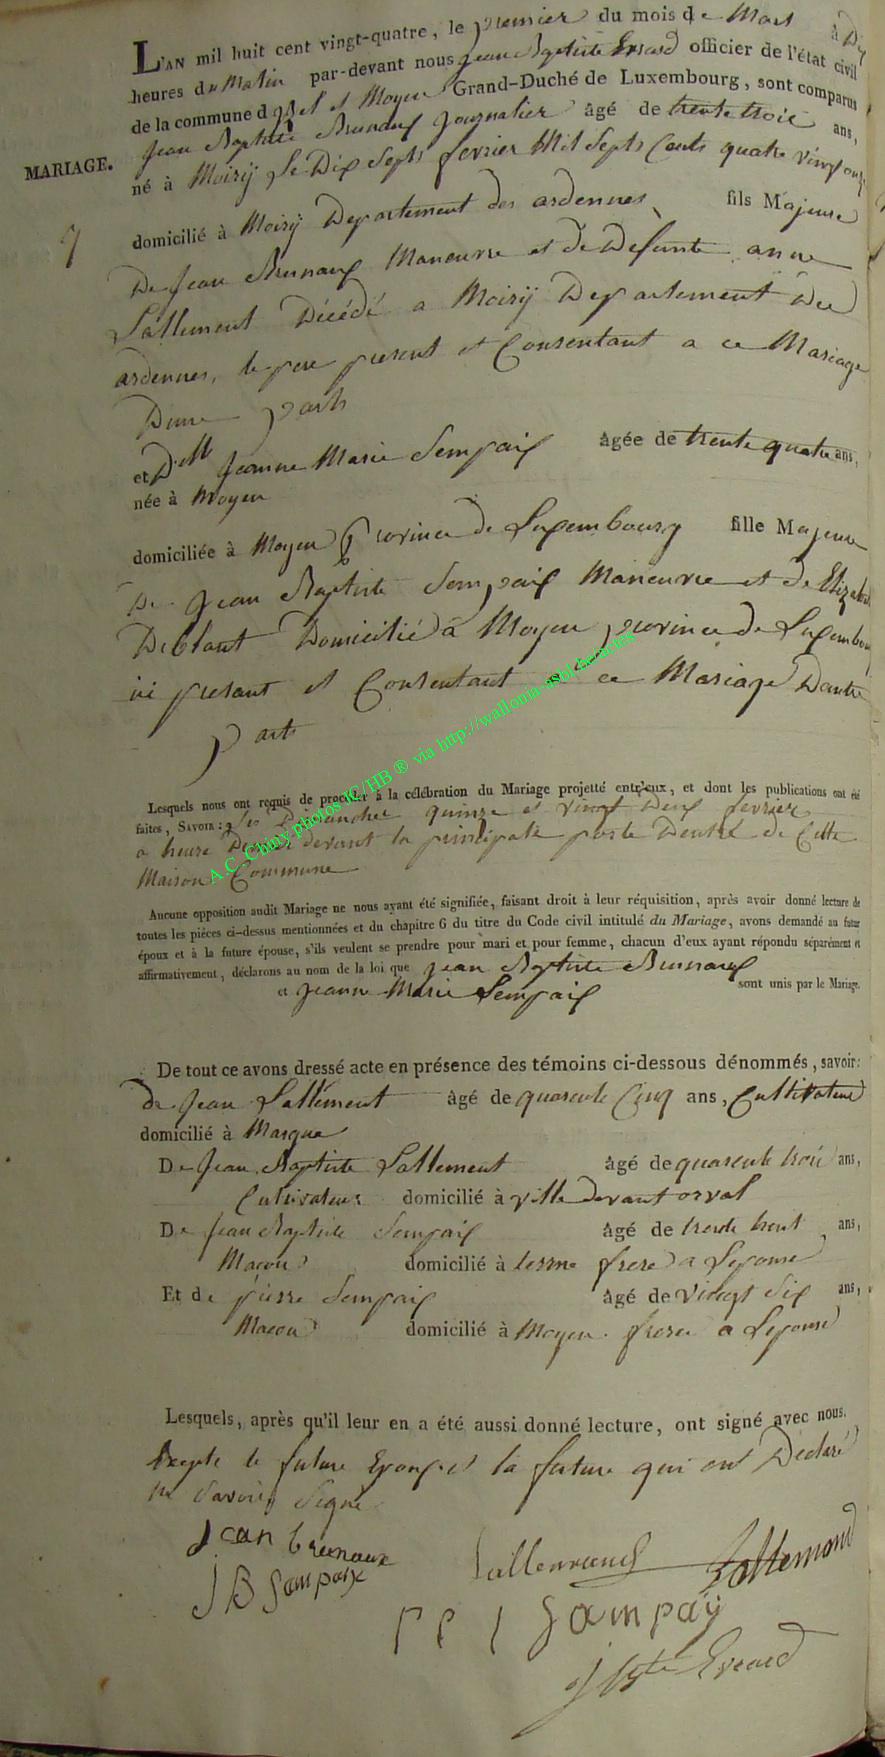 L'AN mil huit cent vingt-quatre, le premier du mois de Mars à Dix
heures du Matin par-devant nous Jean Baptiste Evrard officier de l'état civil
de la commune d'Izel et Moyen Grand-Duché de Luxembourg, sont comparus
Jean Baptiste Brunaux Journalier âgé de trente trois ans,
MARIAGE.
né à Moiry Le Dix Septs fevrier Mil Septs Cents quatre vingt onze
7
domicilié à Moiry Departement des ardennes fils Majeure
De Jean Brunaux Maneuvre et de Defunte anne
Lallement Décédé a Moiry Departement Des
ardennes, le pere present et Consentant a ce Mariage
Dune part
et Dlle Jeanne Marie Sempaix âgée de trente quatre ans,
née à Moyen
domiciliée à Moyen province de Luxembourg fille Majeure
De Jean Baptiste Sempaix Maneuvre et de Elizabet
Deblaut Domicilié à Moyen province de Luxembourg
ici presant et Consentant a ce Mariage Dautre
part
Lesquels nous ont requis de procéder à la célébration du Mariage projetté entr'eux, et dont les publications ont été
faites, SAVOIR : les Dimanches quinze et vingt Deux fevrier
a heure devant la principale porte Dentré de Cette
Maison Commune
Aucune opposition audit Mariage ne nous ayant été signifiée, faisant droit à leur réquisition, après avoir donné lecture de
toutes les pièces ci-dessus mentionnées et du chapitre 6 du titre du Code civil intitulé du Mariage, avons demandé au futur
époux et à la future épouse, s'ils veulent se prendre pour mari et pour femme, chacun d'eux ayant répondu séparément et
affirmativement, déclarons au nom de la loi que Jean Baptiste Brunaux
et Jeanne Marie Sempaix sont unis par le Mariage.
De tout ce avons dressé acte en présence des témoins ci-dessous dénommés, savoir:
de Jean Lallement âgé de quarente Cinq ans, Cultivateur
domicilié à Margue
De Jean Baptiste Lallement âgé de quarente trois ans,
Cultivateur domicilié à ville devant orval
De Jean Baptiste Sempaix âgé de trente ans,
Macon domicilié à termes frere a Lepouse
Et de pierre Sempaix âgé de vingt Six ans,
Macon domicilié à Moyen frere a Lepouse
Lesquels, après qu'il leur en a été aussi donné lecture, ont signé avec nous.
Excepte le future Epoux et la future qui ont Déclaré
ne Savoire Signé
Jean brunaux
Lallemand Lallemand
J B Sampaix
Sampaÿ
J Bte Evrard
A.C. Chiny photos IC/HB ® via http://wallonia-asbl.be/actes